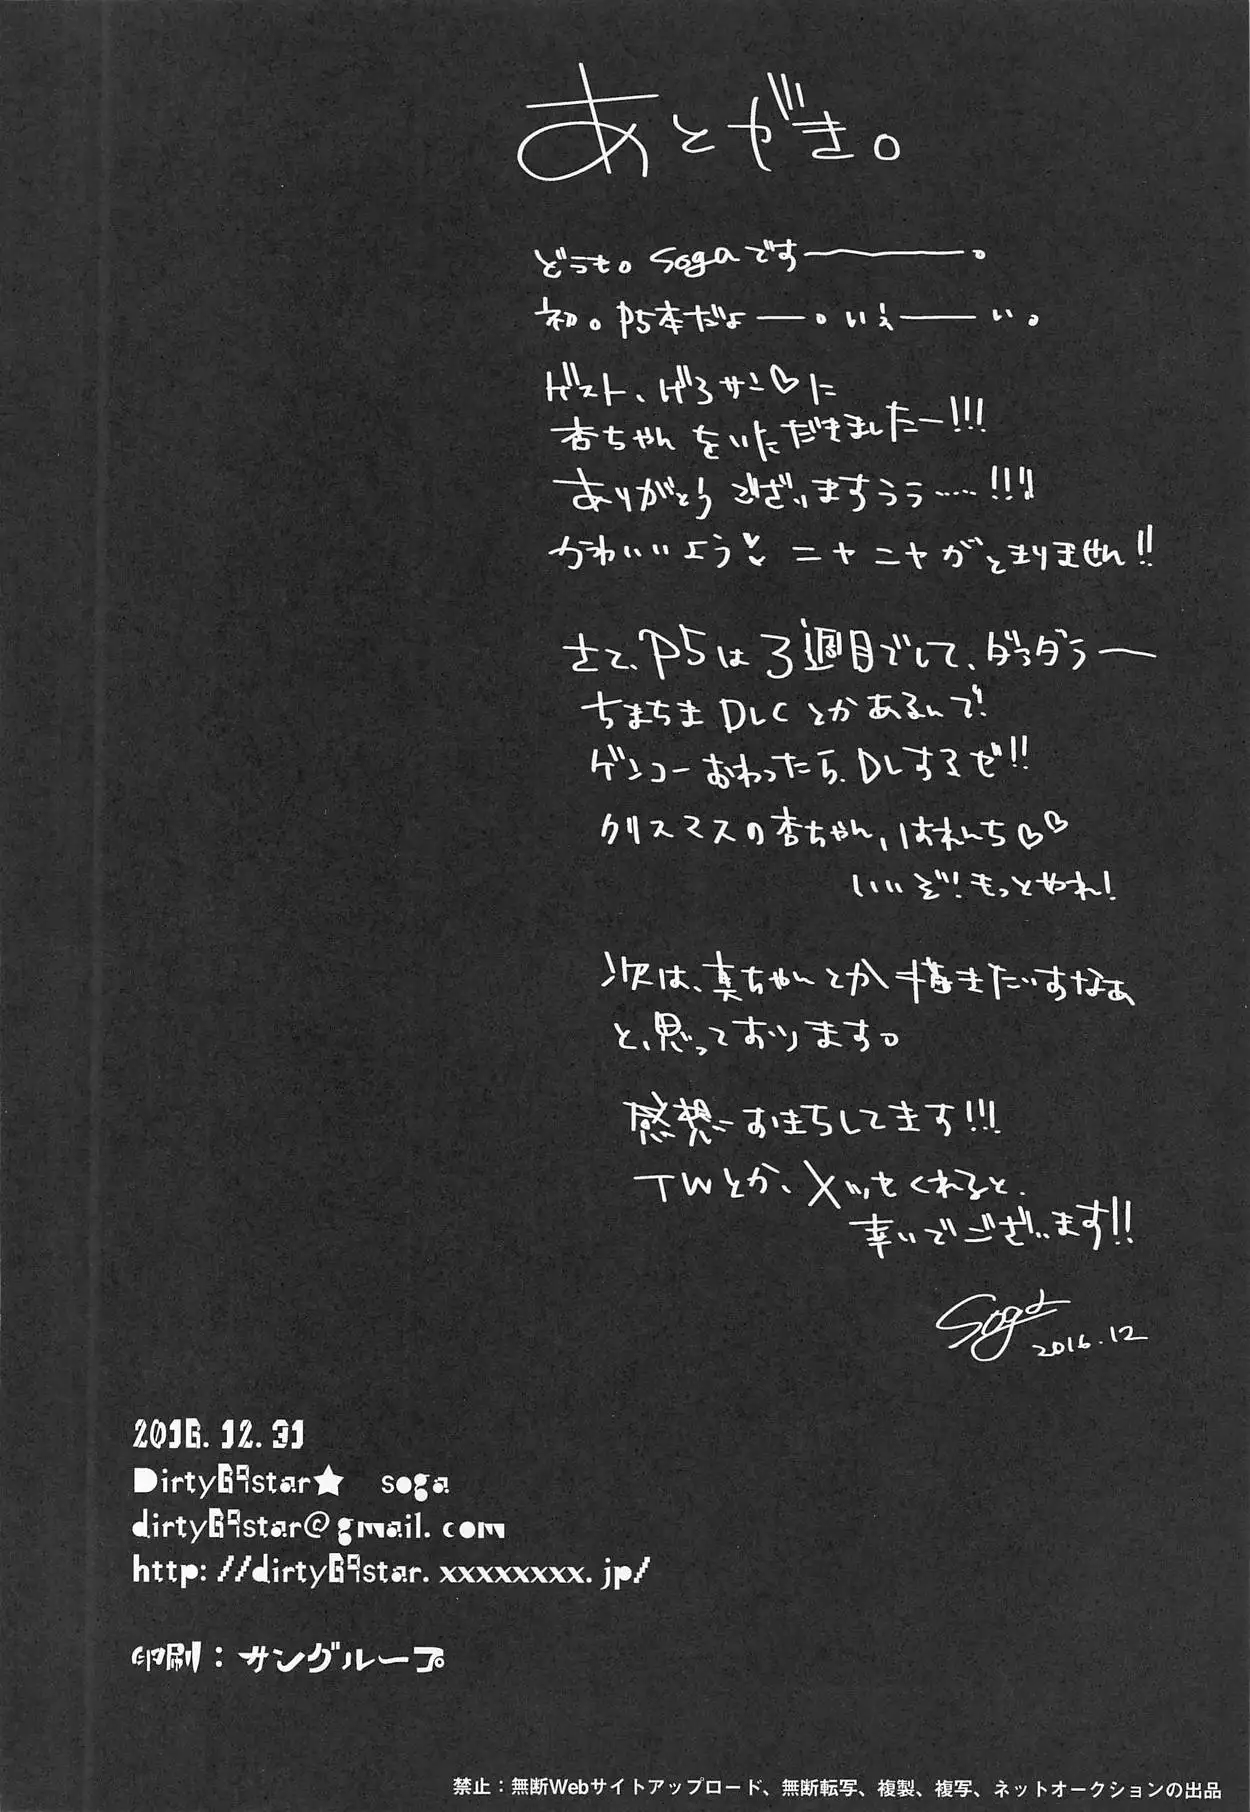 あとがき。
どうも。sogaです―――。
初。P5本だよ――。いぇ――い。
ゲスト、げろサン♡に
杏ちゃんをいただきましたー!!!
ありがとうございますぅぅ……!!!
かわいいよう♥ ニヤニヤがとまりません!!
さて、P5は3週目でして、ダラダラー
ちまちまDLCとかあるんで!
ゲンコーおわったら、DLするぜ!!
クリスマスの杏ちゃん、はれんち♡♡
いいぞ!もっとやれ!
次は、真ちゃんとか描きたいすなぁ
と、思っております。
感想おまちしてます!!!
TWとか、メッセくれると、
幸いでございます!!
Soga
2016.12
2016.12.31
Dirty69star★ soga
dirty69star@gmail.com
http://dirty69star.xxxxxxxx.jp/
印刷：サングループ
禁止：無断Webサイトアップロード、無断転写、複製、複写、ネットオークションの出品